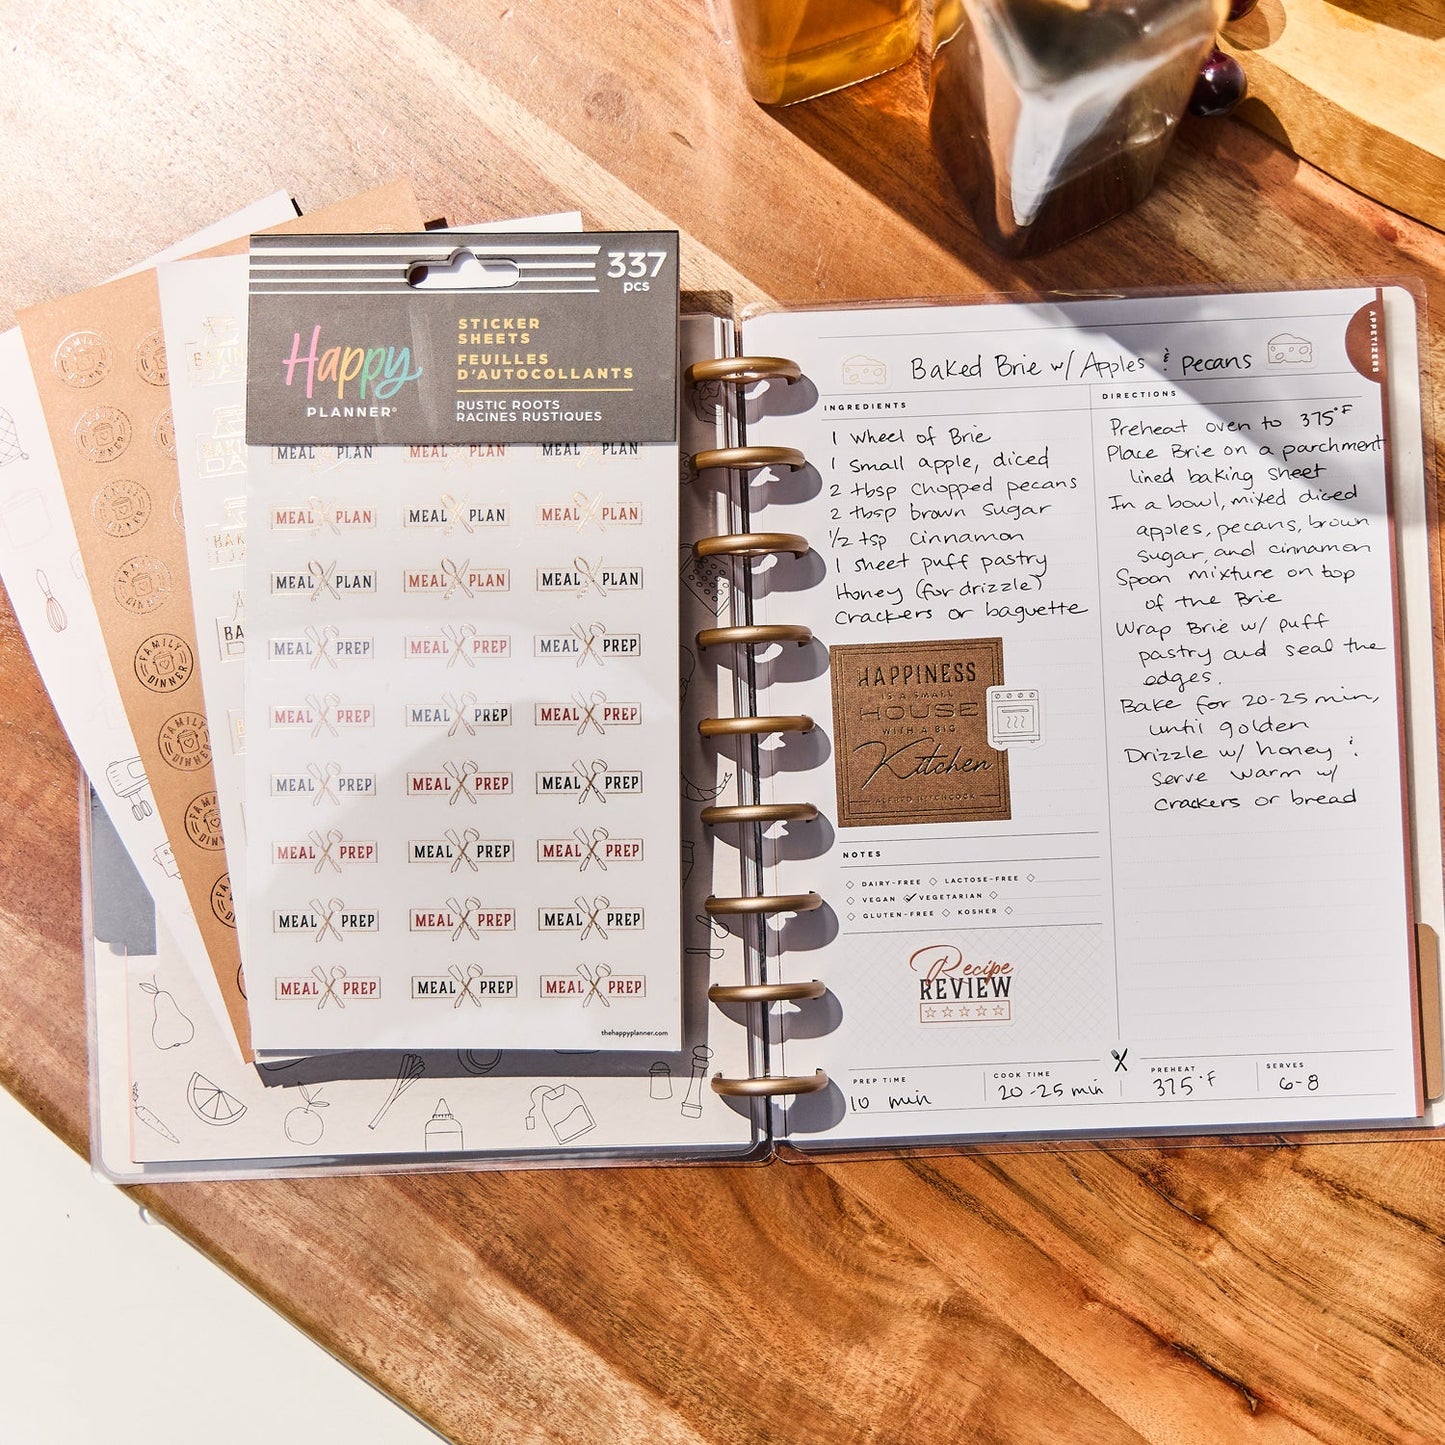 337
pcs
Happy
PLANNER®
STICKER
SHEETS
FEUILLES
D'AUTOCOLLANTS
RUSTIC ROOTS
RACINES RUSTIQUES
MEAL PLAN MEAL PLAN MEAL PLAN
MEAL PLAN MEAL PLAN MEAL PLAN
MEAL PLAN MEAL PLAN MEAL PLAN
MEAL PREP MEAL PREP MEAL PREP
MEAL PREP MEAL PREP MEAL PREP
MEAL PREP MEAL PREP MEAL PREP
MEAL PREP MEAL PREP MEAL PREP
MEAL PREP MEAL PREP MEAL PREP
MEAL PREP MEAL PREP MEAL PREP
thehappyplanner.com
FAMILY DINNER
FAMILY DINNER
FAMILY DINNER
APPETIZERS
Baked Brie w/ Apples & pecans
INGREDIENTS
1 wheel of Brie
1 small apple, diced
2 tbsp chopped pecans
2 tbsp brown sugar
1/2 tsp cinnamon
1 sheet puff pastry
Honey (for drizzle)
Crackers or baguette
HAPPINESS
IS A SMALL
HOUSE
WITH A BIG
Kitchen
ALFRED HITCHCOCK
NOTES
DAIRY-FREE LACTOSE-FREE
VEGAN VEGETARIAN
GLUTEN-FREE KOSHER
Recipe
REVIEW
DIRECTIONS
Preheat oven to 375°F
Place Brie on a parchment
lined baking sheet
In a bowl, mixed diced
apples, pecans, brown
sugar, and cinnamon
Spoon mixture on top
of the Brie
Wrap Brie w/ puff
pastry and seal the
edges.
Bake for 20-25 min,
until golden
Drizzle w/ honey &
serve warm w/
crackers or bread
PREP TIME
10 min
COOK TIME
20-25 min
PREHEAT
375°F
SERVES
6-8